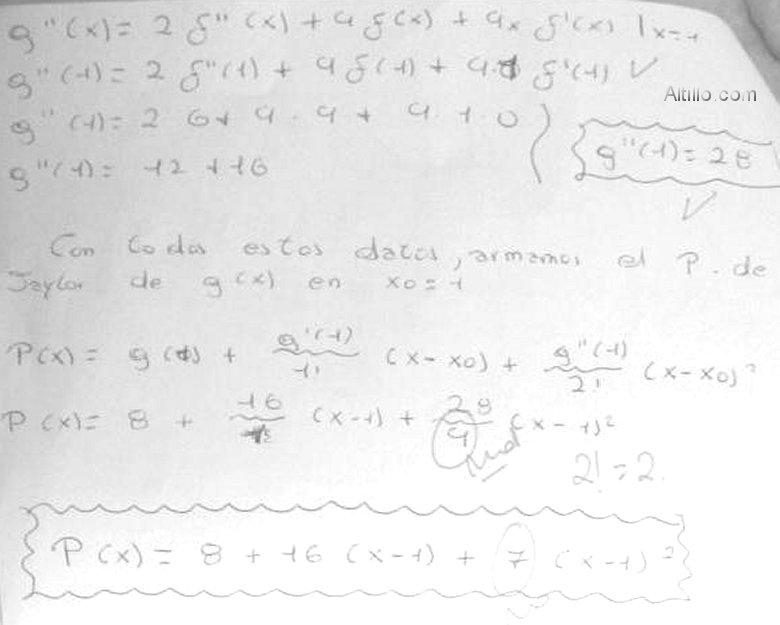 g''(x) = 2 f''(x) + 4 f(x) + 4x f'(x) |x=1
g''(1) = 2 f''(1) + 4 f(1) + 4.1 f'(1) ✓
Altillo.com
g''(1) = 2 6 + 4 . 4 + 4 . 1 . 0
g''(1) = 28
g''(1) = 12 + 16
✓
Con todos estos datos, armamos el P. de
Taylor de g(x) en x0 = 1
P(x) = g(1) + g'(1)/1! (x-x0) + g''(1)/2! (x-x0)²
P(x) = 8 + 16/1 (x-1) + 28/4 (x-1)²
2! = 2.
P(x) = 8 + 16 (x-1) + 7 (x-1)²